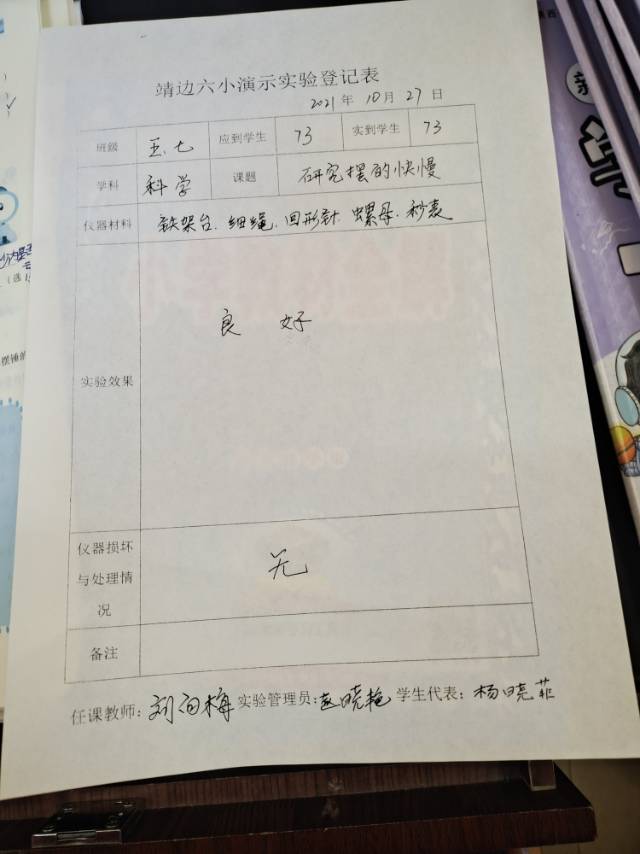 靖边六小演示实验登记表
2021年 10月 27日
班级 五.七 应到学生 73 实到学生 73
学科 科学 课题 研究摆的快慢
仪器材料 铁架台.细绳.回形针.螺母.秒表
实验效果 良 好
仪器损坏
与处理情
况
无
备注
任课教师：刘向梅 实验管理员：赵晓艳 学生代表：杨晓菲